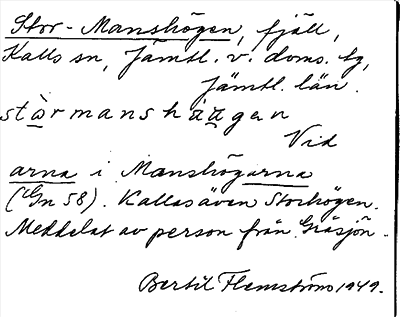 Stor-Manshögen, fjäll,
Kalls sn, Jämtl. v. doms. tg,
Jämtl. län.
stòrmanshä̀a̲gen
Vid
arna i Manshögarna
(Gn 58). Kallas även Storhögen.
Meddelat av person från Gråsjön.
Bertil Flemström 1949.